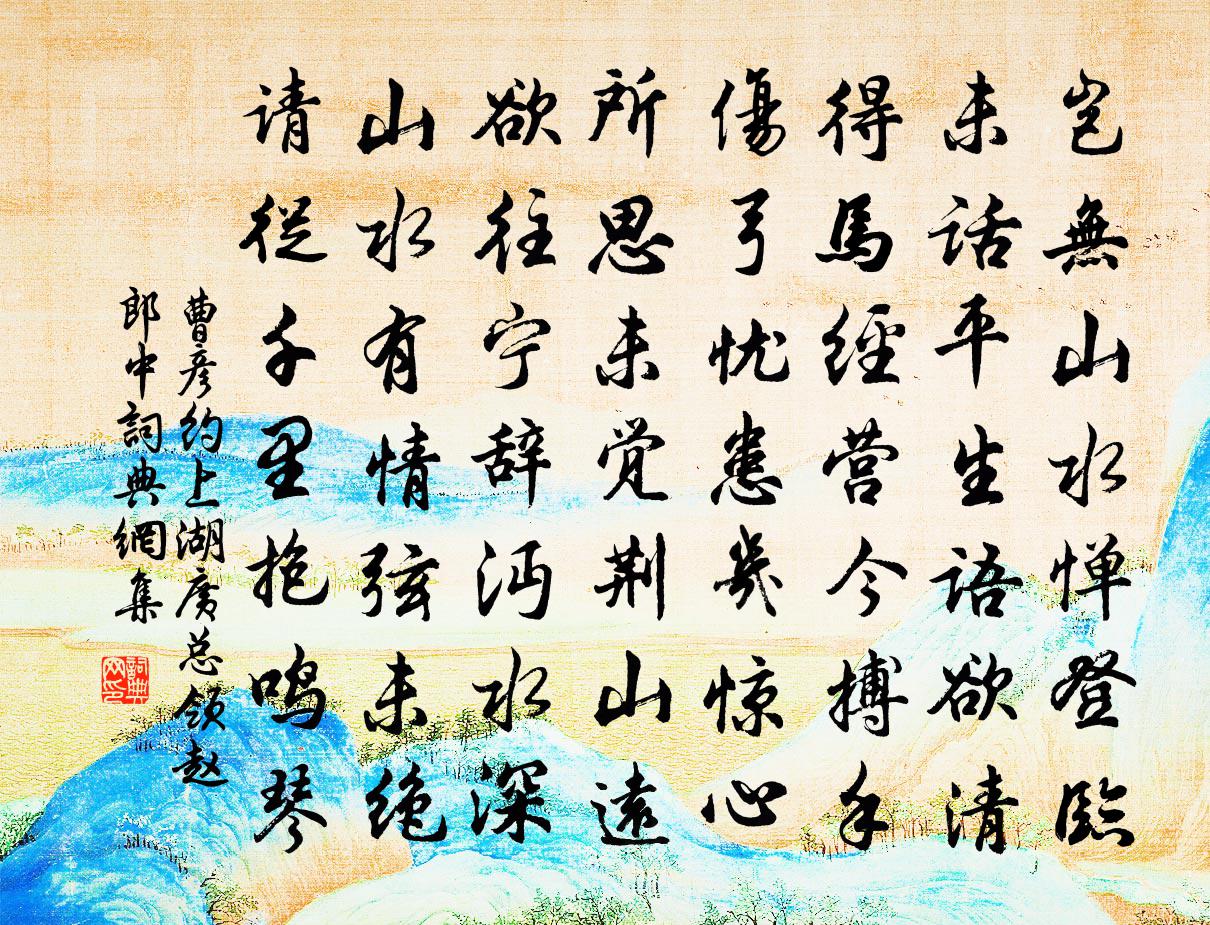 岂無山水惮登臨
未话平生语欲清
得馬經营今搏手
傷弓忧患幾惊心
所思未觉荆山遠
欲往宁辞沔水深
山水有情弦未绝
请從千里抱鸣琴
曹彦约上湖廣总领赵
郎中詞典網集
詞典网印